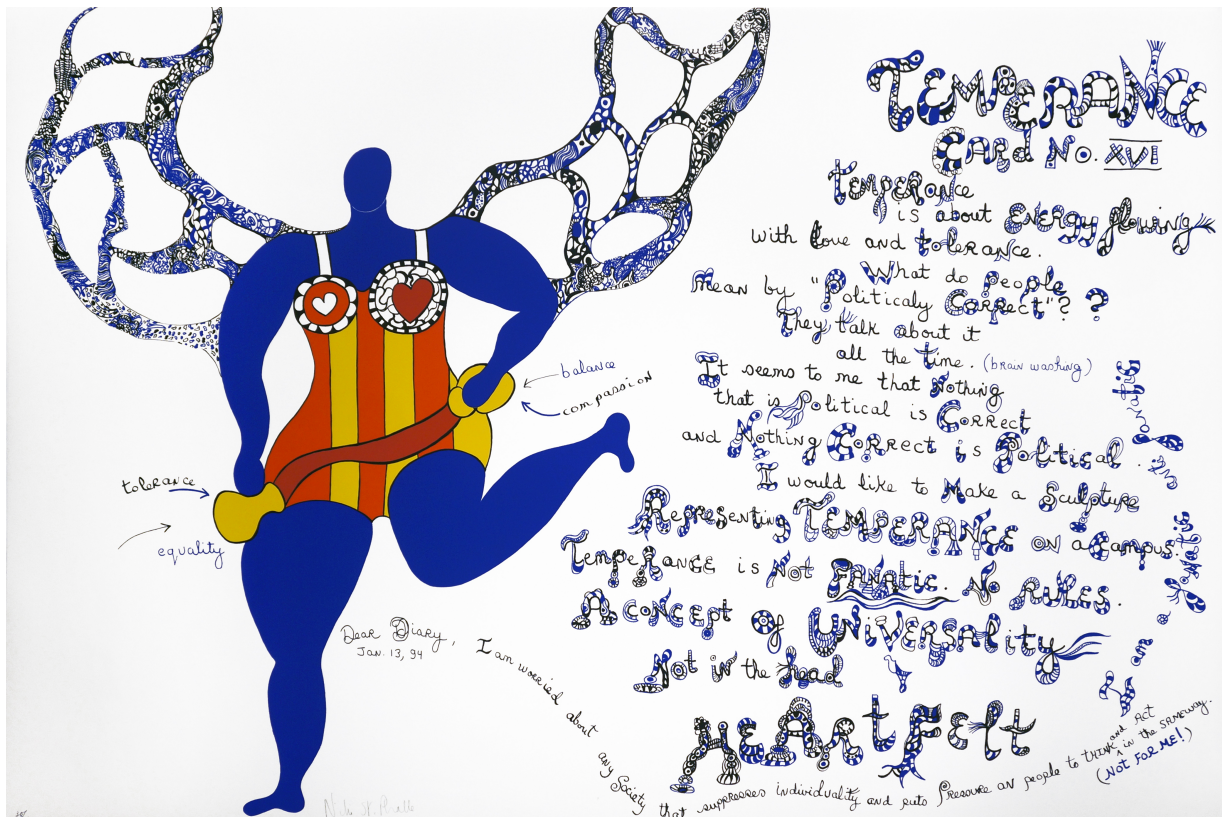 TEMPERANCE
CARd No. XVI
TEMPERANCE
is about ENERGY flowing
with love and tolerance.
What do people
mean by "Politicaly Correct"?
?
They talk about it
all the time. (brain washing)
It seems to me that Nothing
that is Political is Correct
and Nothing Correct is Political.
I would like to Make a Sculpture
Representing TEMPERANCE on a Campus.
TempeRANCE is Not FANAtic. No RULES.
A concept of UNIVERSALity
Not in the head
HEARtFelt
balance
compassion
tolerance
equality
Dear Diary,
Jan. 13, 94
I am worried about any Society that suppresses individuality and puts Pressure on people to THINK and Act in the SAME WAY.
(NOT FOR ME!)
I am